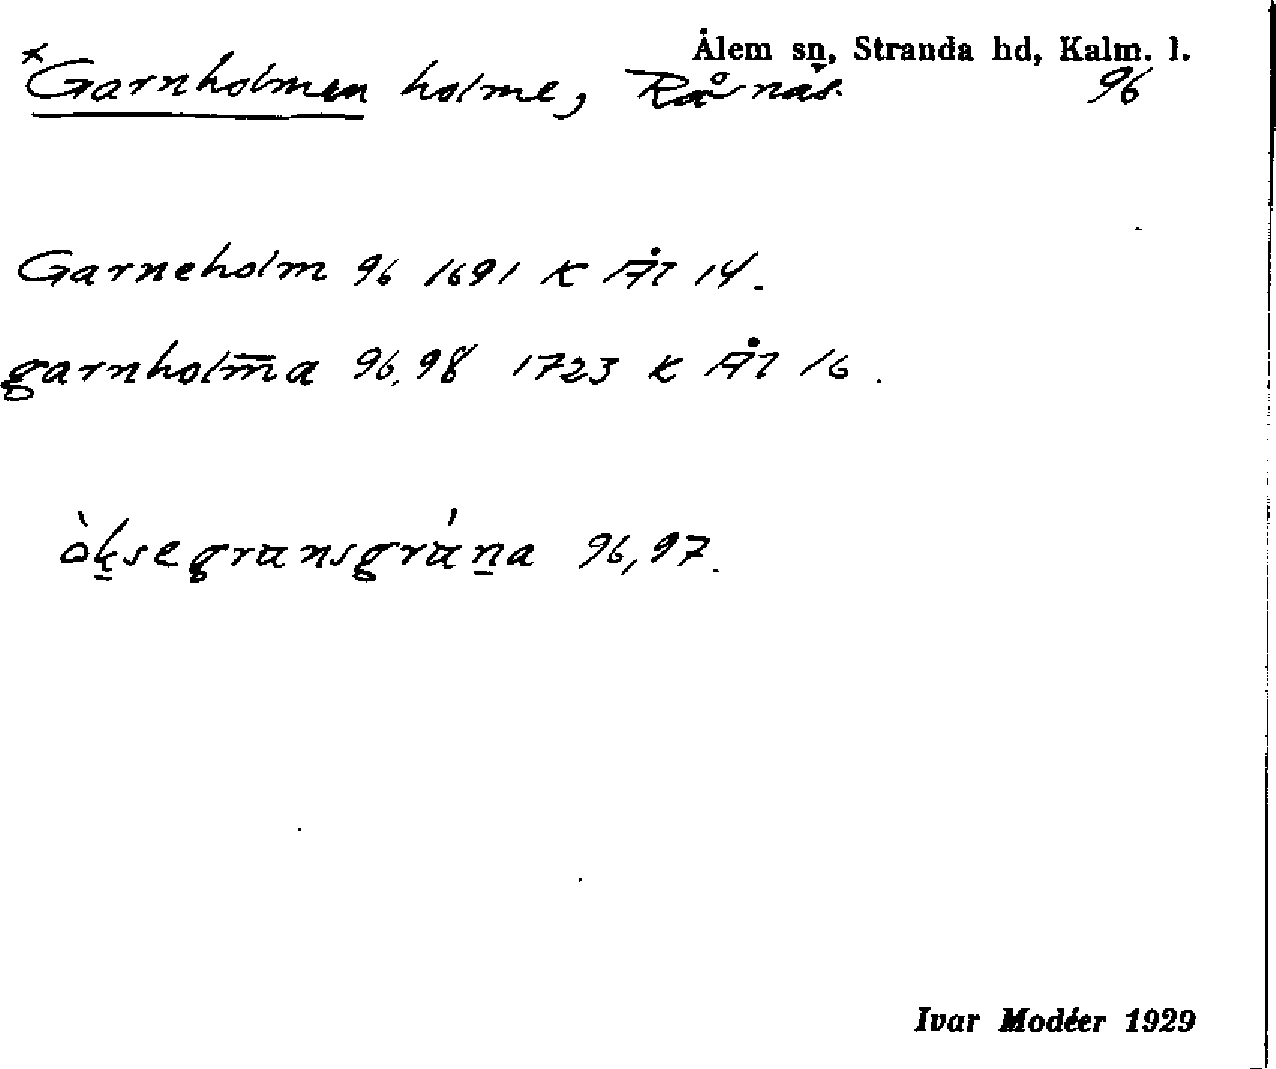 Ålem sn, Stranda hd, Kalm. l.
×Garnholmen holme, Rånäs. 96
Garneholm 96 1691 K Ål 14.
garnholm̄a 96,98 1723 K Ål 16.
96,97.
Ivar Modéer 1929